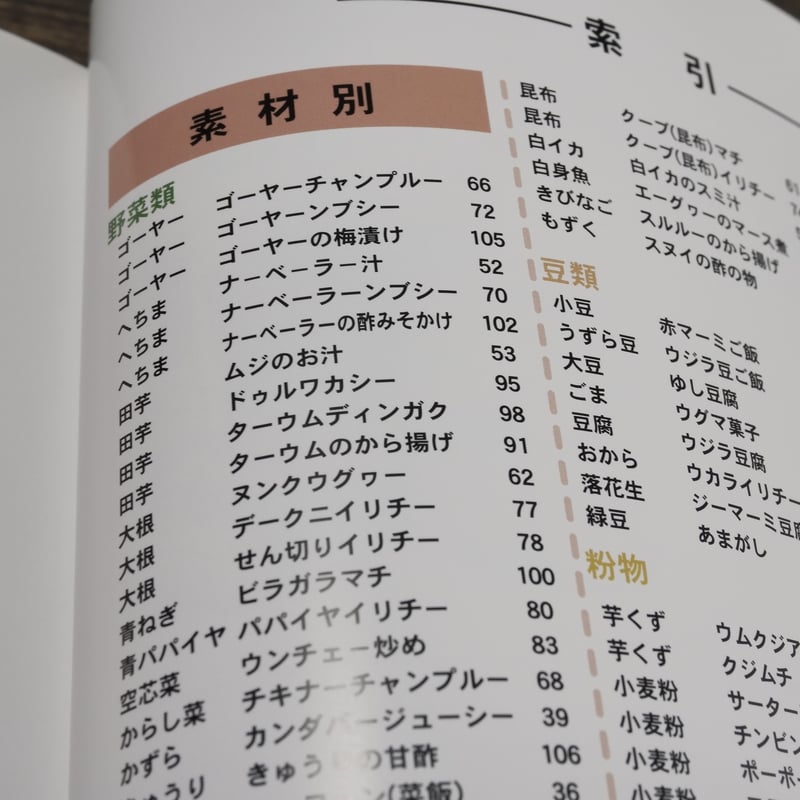 索 引
素材別
野菜類
ゴーヤー ゴーヤーチャンプルー 66
ゴーヤー ゴーヤーンブシー 72
ゴーヤー ゴーヤーの梅漬け 105
へちま ナーベーラー汁 52
へちま ナーベーラーンブシー 70
へちま ナーベーラーの酢みそかけ 102
田芋 ムジのお汁 53
田芋 ドゥルワカシー 95
田芋 ターウムディンガク 98
田芋 ターウムのから揚げ 91
大根 ヌンクウグヮー 62
大根 デークニイリチー 77
大根 せん切りイリチー 78
青ねぎ ビラガラマチ 100
青パパイヤ パパイヤイリチー 80
空芯菜 ウンチェー炒め 83
からし菜 チキナーチャンプルー 68
かずら カンダバージューシー 39
きゅうり きゅうりの甘酢 106
(菜飯) 36
昆布 クーブ(昆布)マチ
昆布 クーブ(昆布)イリチー
白イカ 白イカのスミ汁
白身魚 エーグヮーのマース煮
きびなご スルルーのから揚げ
もずく スヌイの酢の物
豆類
小豆 赤マーミご飯
うずら豆 ウジラ豆ご飯
大豆 ゆし豆腐
ごま ウグマ菓子
豆腐 ウジラ豆腐
おから ウカライリチー
落花生 ジーマーミ豆腐
緑豆 あまがし
粉物
芋くず ウムクジア
芋くず クジムチ
小麦粉 サーター
小麦粉 チンビン
小麦粉 ポーポー
小麦粉